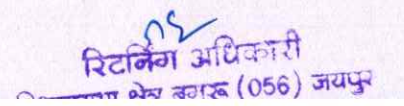 रिटर्निंग अधिकारी
क्षेत्र बगरू (056) जयपुर